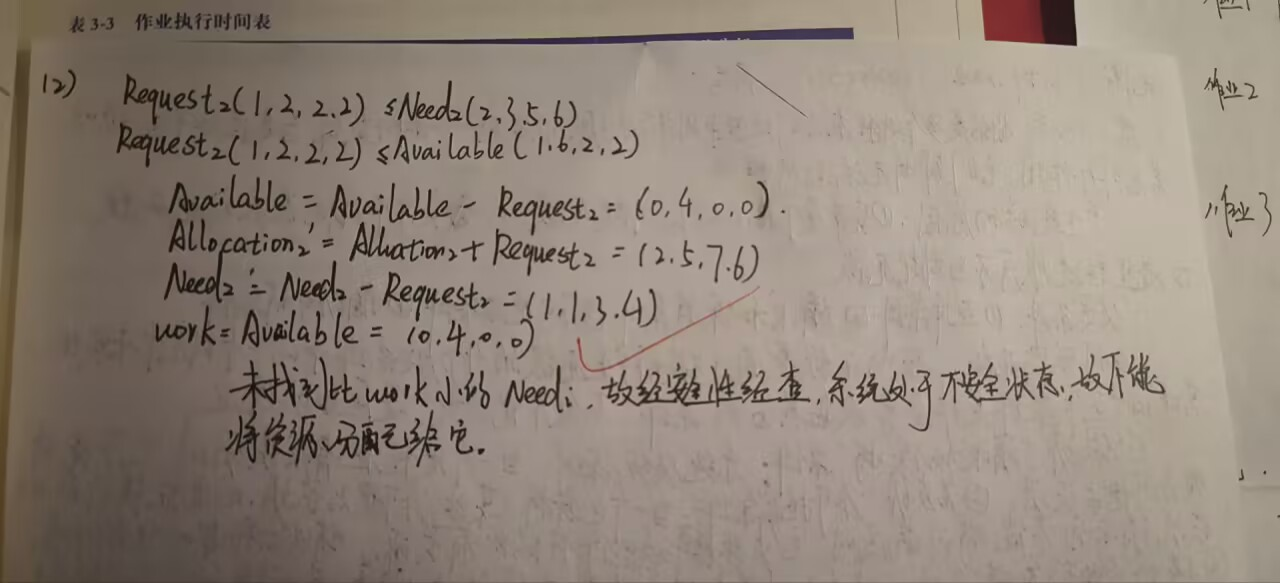 表 3-3 作业执行时间表
(2) Request₂(1,2,2.2) ≤Need₂(2.3.5,6)
Request₂(1,2,2,2) ≤Available(1.6,2,2)
Available = Available - Request₂ = (0,4,0,0).
Allocation₂' = Allocation₂ + Request₂ = (2.5,7.6)
Need₂' = Need₂ - Request₂ = (1,1,3.4)
work = Available = (0.4,0,0)
未找到比work小的 Needi,故经安全性经查,系统处于不安全状态,故不能
将资源分配给它。
作业2
作业3